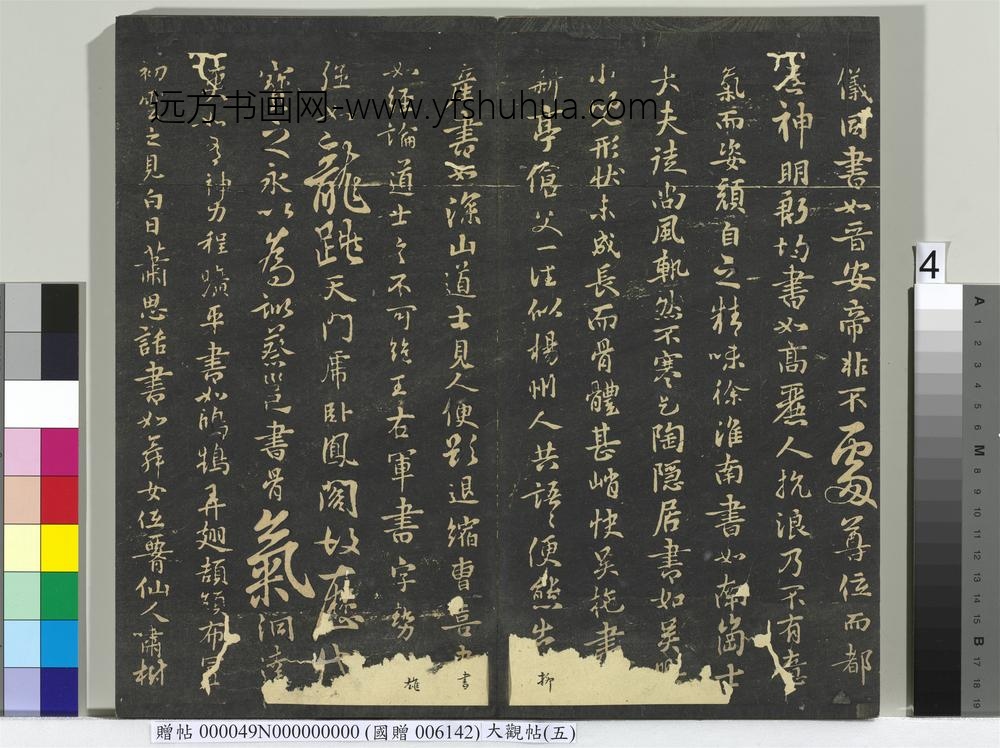 儀同書如晉安帝非不處尊位而都
無神明郗均書如高麗人抗浪乃不有意
氣而姿顏自乏精味徐淮南書如南崗士
大夫徒尚風軌然不寒乞陶隱居書如吳興
小兒形狀未成長而骨體甚峭快吳施書
新亭傖父一往似楊州人共語語便態出 柳
產書如深山道士見人便欲退縮曹喜 書
如經論道士言不可絕王右軍書字勢 雄
強如龍跳天門虎臥鳳閣故歷
寶之永以為訓蔡邕書骨氣洞達
神力程曠平書如鴻鵠弄翅頡頏布置
初雲之見白日蕭思話書如舞女伍腰仙人嘯樹
远方书画网-www.yfshuhua.com
4
贈帖 000049N000000000 (國贈 006142) 大觀帖(五)
A 1 2 3 4 5 6 M 8 9 10 11 12 13 14 15 B 17 18 19